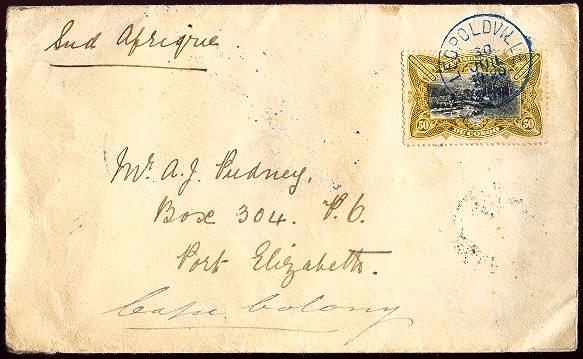 Sud Afrique
LEOPOLDVILLE
30
JUIL
50 50
Mr. A. J. Pudney,
Box 304. P. O.
Port Elizabeth.
Cape Colony